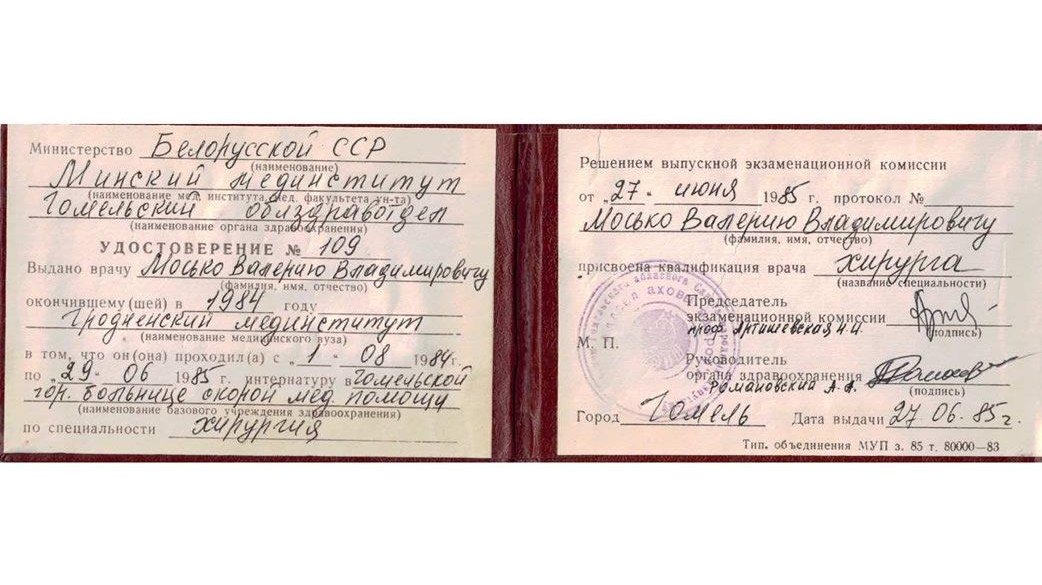 Министерство Белорусской ССР
(наименование)
Минский мединститут
(наименование мед. института, мед. факультета ун-та)
Гомельский облздравотдел
(наименование органа здравоохранения)
УДОСТОВЕРЕНИЕ № 109
Выдано врачу Мосько Валерию Владимировичу
(фамилия, имя, отчество)
окончившему(шей) в 1984 году
Гродненский мединститут
(наименование медицинского вуза)
в том, что он(она) проходил(а) с „1“ 08 1984г.
по „29“ 06 1985г. интернатуру в Гомельской
гор. больнице скорой мед помощи
(наименование базового учреждения здравоохранения)
по специальности хирургия
Решением выпускной экзаменационной комиссии
от „27“ июня 1985 г. протокол №
Мосько Валерию Владимировичу
(фамилия, имя, отчество)
присвоена квалификация врача хирурга
(название специальности)
Председатель
экзаменационной комиссии
проф. Артишевская Н.И.
(подпись)
М. П.
Руководитель
органа здравоохранения
Романовский А. А.
(подпись)
Город Гомель Дата выдачи 27 06. 85г.
Тип. объединения МУП з. 85 т. 80000—83